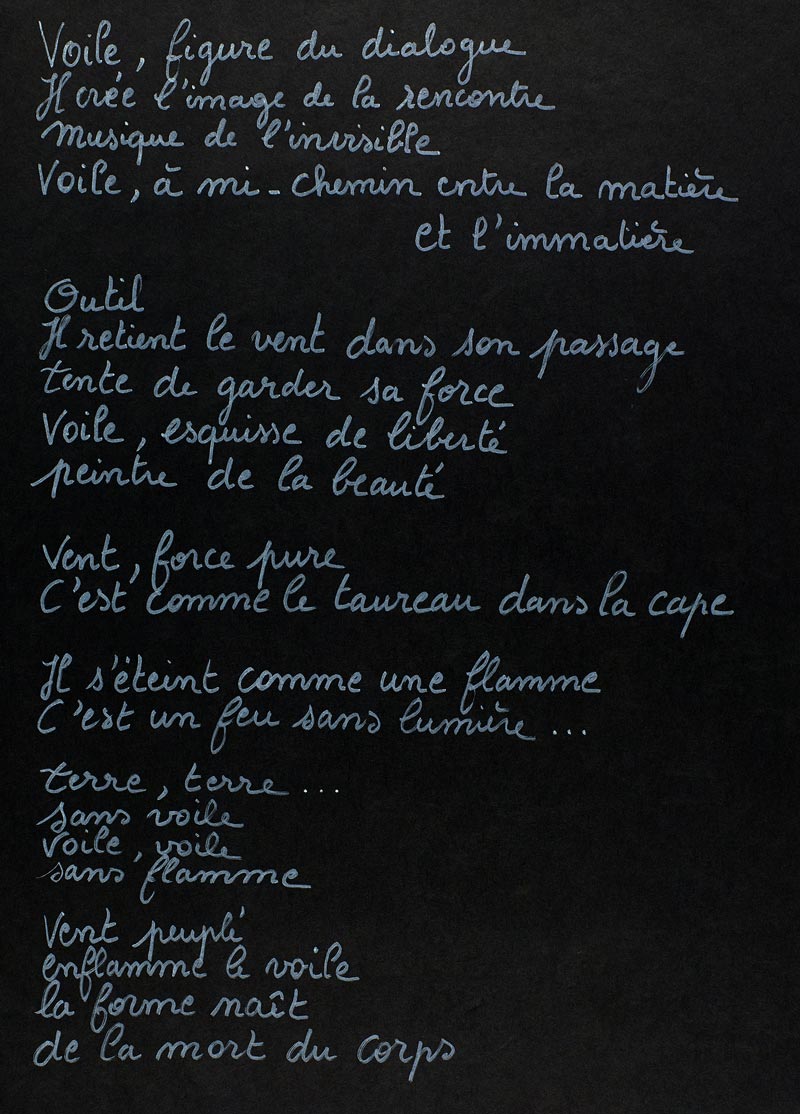 Voile, figure du dialogue
Il crée l'image de la rencontre
Musique de l'invisible
Voile, à mi-chemin entre la matière
et l'immatière
Outil
Il retient le vent dans son passage
tente de garder sa force
Voile, esquisse de liberté
peintre de la beauté
Vent, force pure
C'est comme le taureau dans la cape
Il s'éteint comme une flamme
C'est un feu sans lumière ...
terre, terre ...
sans voile
voile, voile
sans flamme
Vent peuplé
enflamme le voile
la forme naît
de la mort du corps